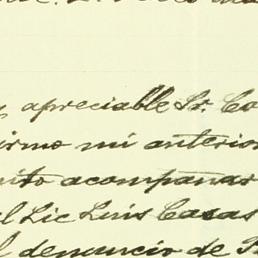 apreciable Sr. Co
irmo mi anterior
ito acompañar
el Lic Luis Casas
l denuncio de